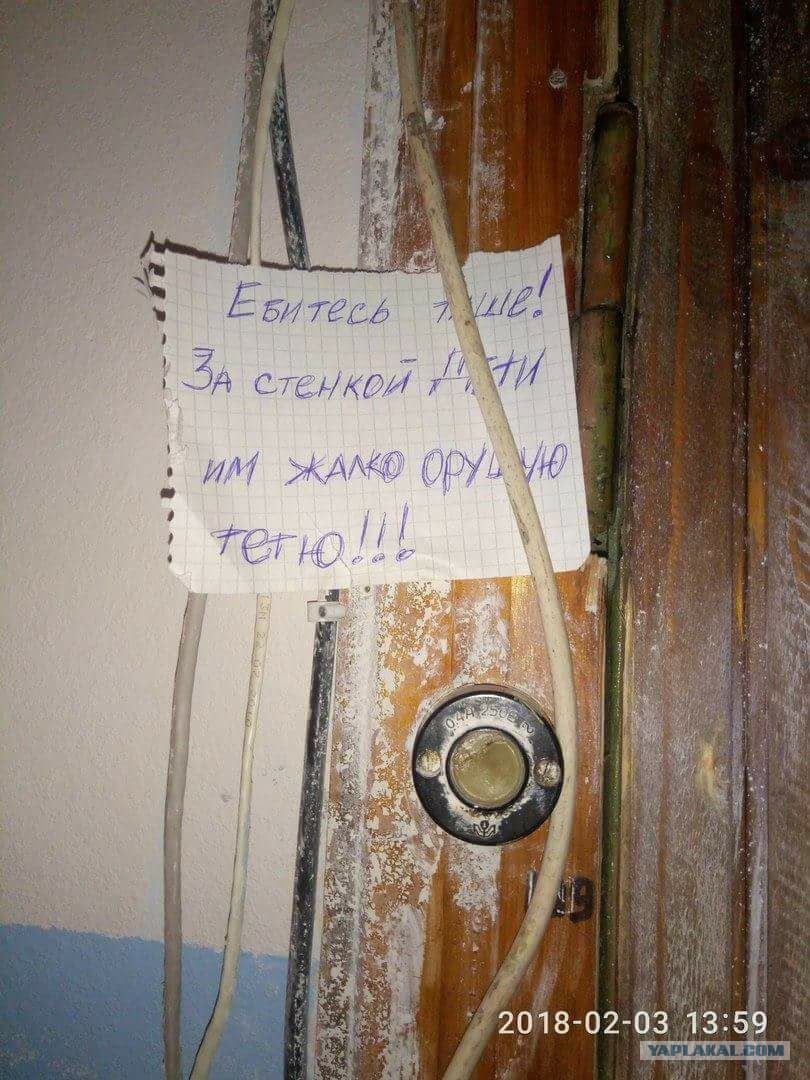 Ебитесь тише!
За стенкой Дети
им жалко орущую
тётю!!!
0,4А 250В
2018-02-03 13:59
YAPLAKAL.COM